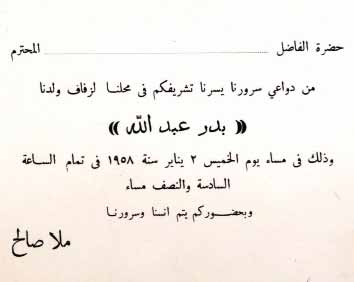 حضرة الفاضل ........................ المحترم
من دواعي سرورنا يسرنا تشريفكم في محلنا لزفاف ولدنا
(( بدر عبد الله ))
وذلك في مساء يوم الخميس ٢ يناير سنة ١٩٥٨ في تمام الساعة
السادسة والنصف مساء
وبحضوركم يتم انسنا وسرورنا
ملا صالح